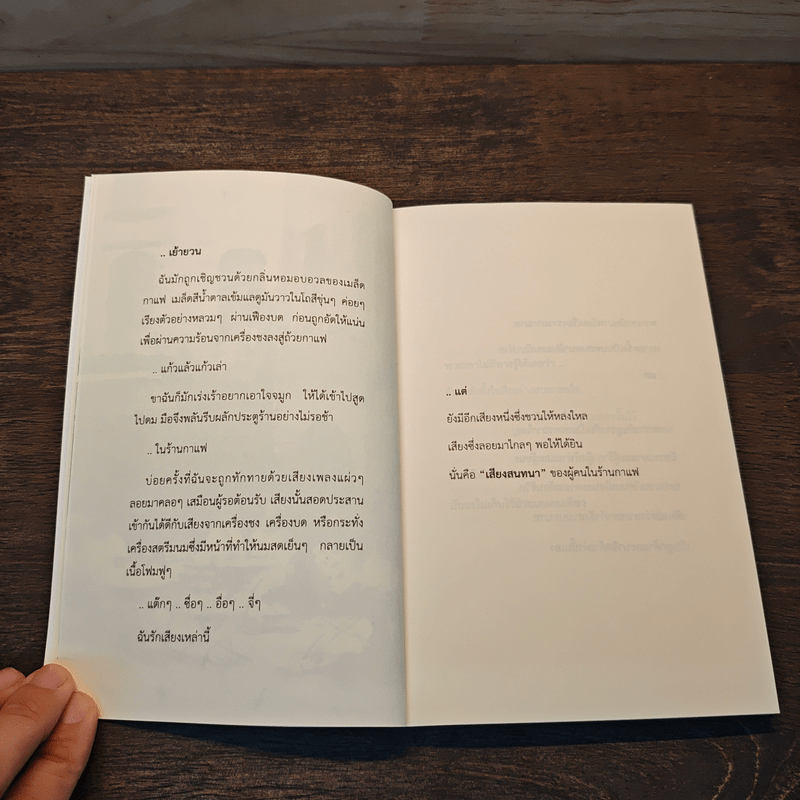 .. เย้ายวน
ฉันมักถูกเชิญชวนด้วยกลิ่นหอมอบอวลของเมล็ด
กาแฟ เมล็ดสีน้ำตาลเข้มแลดูมันวาวในโถสีขุ่นๆ ค่อยๆ
เรียงตัวอย่างหลวมๆ ผ่านเฟืองบด ก่อนถูกอัดให้แน่น
เพื่อผ่านความร้อนจากเครื่องชงลงสู่ถ้วยกาแฟ
.. แก้วแล้วแก้วเล่า
ขาฉันก็มักเร่งเร้าอยากเอาใจจมูก ให้ได้เข้าไปสูด
ไปดม มือจึงพลันรีบผลักประตูร้านอย่างไม่รอช้า
.. ในร้านกาแฟ
บ่อยครั้งที่ฉันจะถูกทักทายด้วยเสียงเพลงแผ่วๆ
ลอยมาคลอๆ เสมือนผู้รอต้อนรับ เสียงนั้นสอดประสาน
เข้ากันได้ดีกับเสียงจากเครื่องชง เครื่องบด หรือกระทั่ง
เครื่องสตรีมนมซึ่งมีหน้าที่ทำให้นมสดเย็นๆ กลายเป็น
เนื้อโฟมฟูๆ
.. แต๊กๆ .. ชื่อๆ .. อื่อๆ .. จี่ๆ
ฉันรักเสียงเหล่านี้
.. แต่
ยังมีอีกเสียงหนึ่งซึ่งชวนให้หลงใหล
เสียงซึ่งลอยมาไกลๆ พอให้ได้ยิน
นั่นคือ “เสียงสนทนา” ของผู้คนในร้านกาแฟ